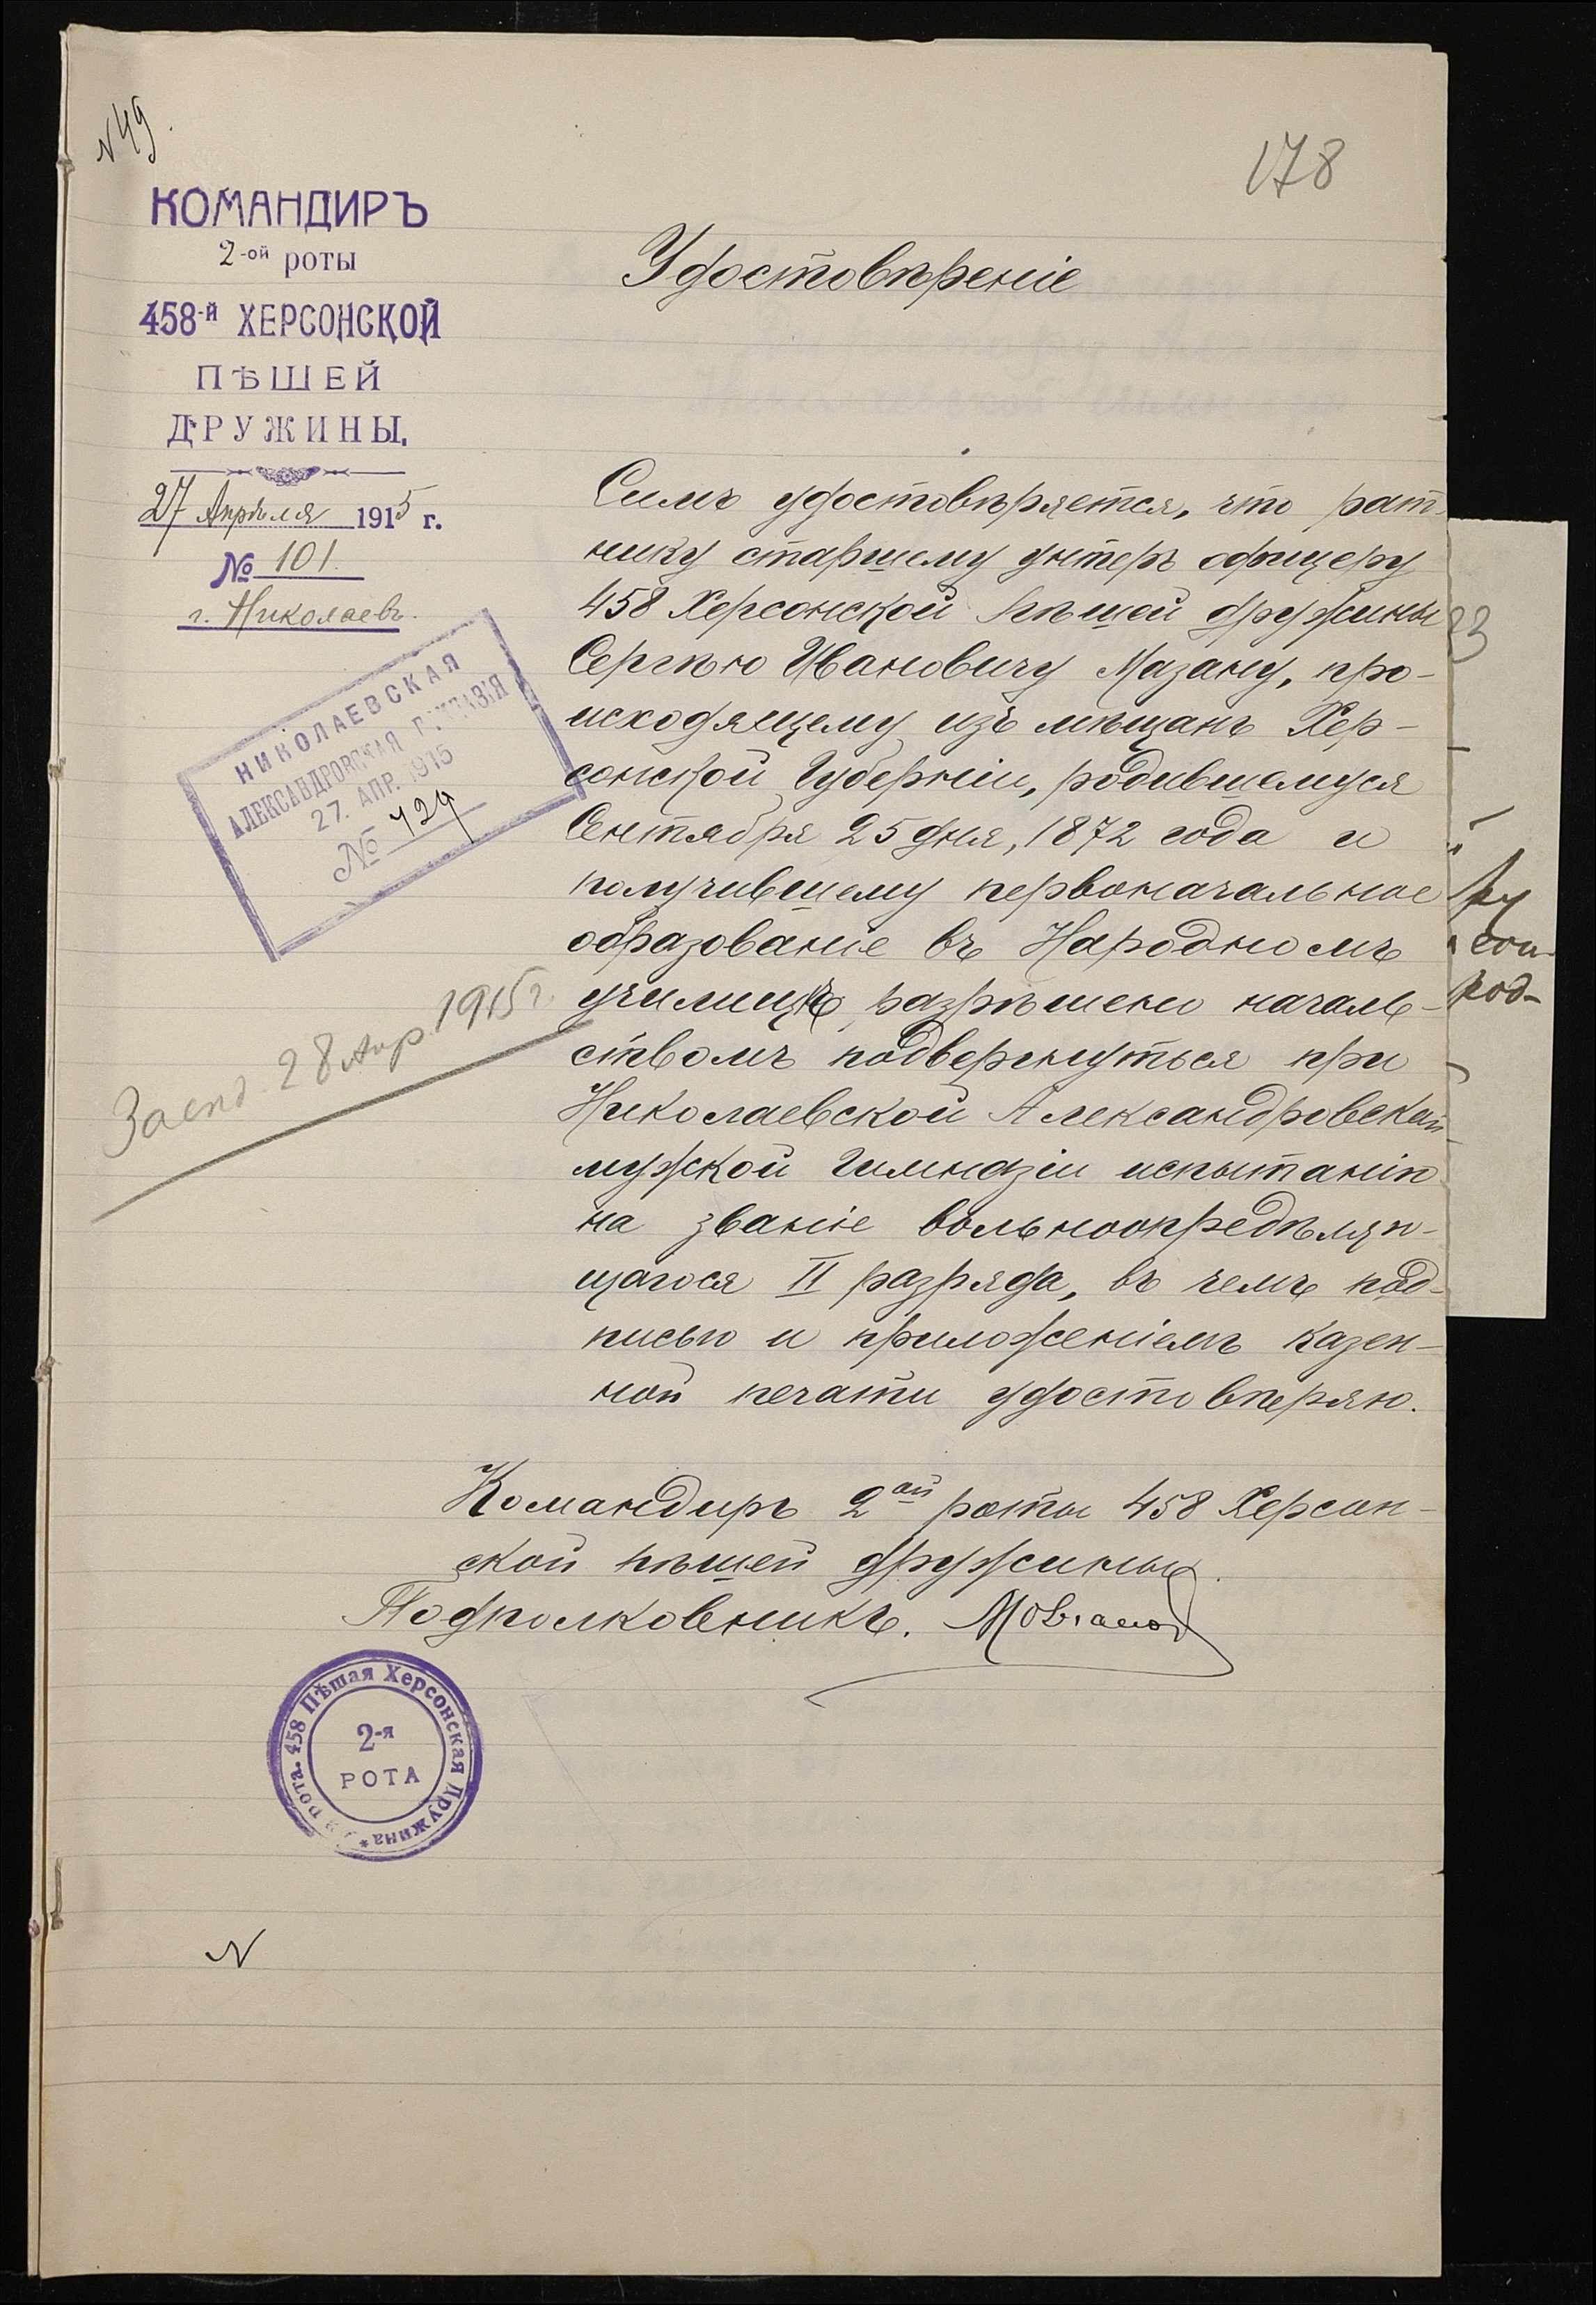 N49.
178
КОМАНДИРЪ
2-ой роты
458-й ХЕРСОНСКОЙ
ПѢШЕЙ
ДРУЖИНЫ.
27 Апрѣля 1915 г.
№ 101.
г. Николаевъ.
НИКОЛАЕВСКАЯ
АЛЕКСАНДРОВСКАЯ ГИМНАЗІЯ
27. АПР. 1915
№ 729
Засл. 28 Апр. 1915 г.
Удостовѣреніе
Симъ удостовѣряется, что рат-
нику старшему унтеръ офицеру
458 Херсонской Пѣшей дружины
Сергѣю Ивановичу Мазану, про-
исходящему изъ мѣщанъ Хер-
сонской Губерніи, родившемуся
Сентября 25 дня, 1872 года и
получившему первоначальное
образованіе въ Народномъ
училищѣ, разрѣшено началь-
ствомъ подвергнуться при
Николаевской Александровской
мужской Гимназіи испытанію
на званіе вольноопредѣляю-
щагося II разряда, въ чемъ под-
писью и приложеніемъ казен-
ной печати удостовѣряю.
Командиръ 2ой роты 458 Херсон-
ской пѣшей дружины.
Подполковникъ.
458 Пѣшая Херсонская Дружина * рота.
2-я
РОТА
N